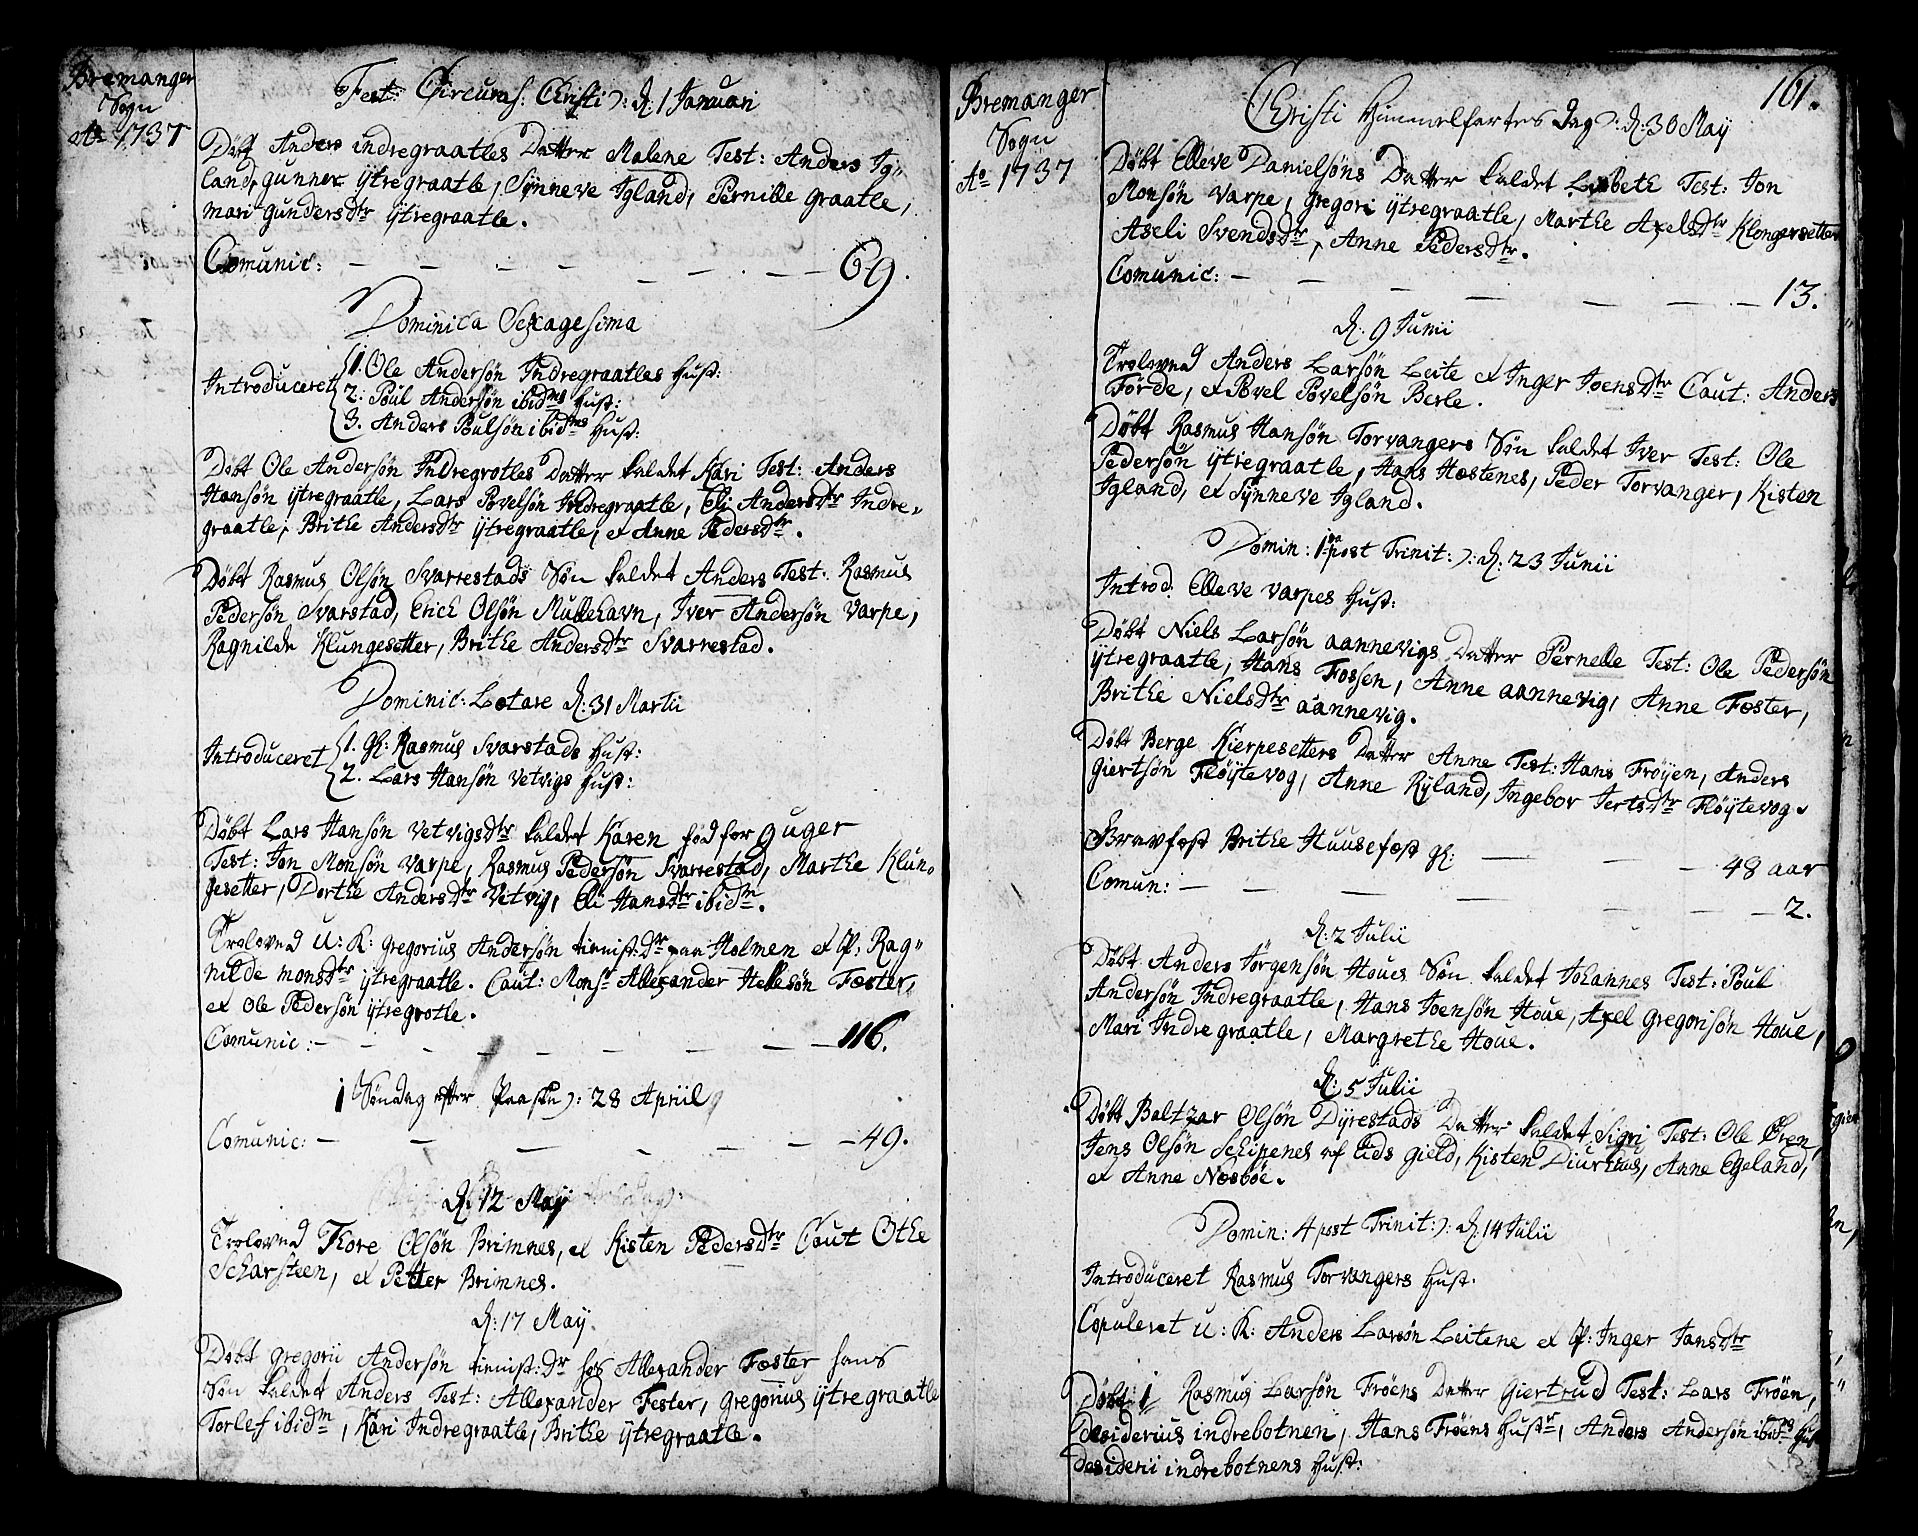 Bremanger
Sogn
Ao 1737
Fest: Circumc: Christi): d: 1 Januari
Døbt Anders indregraatles Datter Malene Test: Anders Ig„
land, gunner ÿtregraatle, Sÿnneve Igland, Pernille graatle,
mari gundersdtr ÿtregraatle.
Comunic: — — — — — — — 69.
Dominica Sexagesima
Introduceret 1. Ole Andersøn Indregraatles Hust:
2: Poul Andersøn ibidms Hust:
3. Anders Poulsøn ibidms Hust:
Døbt Ole Andersøn Indregrotles Datter kaldet Kari Test: Anders
Hansøn ÿtregraatle, Lars Povelsøn Indregraatle, Eli Andersdtr Indre„
graatle, Brithe Andersdtr ÿtregraatle, et Anne Pedersdtr.
Døbt Rasmus Olsøn Svarrestads Søn kaldet Anders Test: Rasmus
Pedersøn Svarstad, Erich Olsøn Mullehavn, Iver Andersøn Varpe,
Ragnilde Klungesetter, Brithe Andersdtr Svarrestad.
Dominic: Lætare d: 31 Martii
Introduceret 1. gl: Rasmus Svarstads Hust:
2. Lars Hansøn Vetvigs Hust:
Døbt Lars Hansøn Vetvigsdtr kaldet Karen fød for 9 uger
Test: Jon Monsøn Varpe, Rasmus Pedersøn Svarrestad, Marthe Klun„
gesetter, Dorthe Andersdtr Vetvig, Eli Hansdtr ibidm.
Troloved U: K: gregorius Andersøn tienist: Dr paa Holmen et P: Rag„
nilde monsdtr ÿtregraatle. Caut: Monsr Allexander Hellesøn Fæster,
et Ole Pedersøn ÿtregrotle.
Comunic: — — — — — — — 116.
1 Søndag efter Paaske): 28 Apriil
Comunic: — — — — — — 49.
d: 12 Maÿ
Troloved Thore Olsøn Brimnes, et Kisten Pedersdtr Caut Othe
Scharsteen, et Petter Brimnes.
d: 17 Maÿ.
Døbt gregorii Andersøn tienist: Dr hos Allexander Fæster hans
Søn kaldet Anders Test: Allexander Fester, gregorius ÿtregraatle
Torlef ibidm, Kari Indregraatle, Brithe ÿtregraatle.
161.
Bremanger
Sogn
Ao 1737
Christi Himmelfartes dag): d: 30 Maÿ
Døbt Elleve Danielsøns Datter kaldet Lisbeth Test: Jon
Monsøn Varpe, Gregori ÿtregraatle, Marthe Axelsdtr Klongersetter
Aseli Svendsdtr, Anne Pedersdtr.
Comunic: — — — — — — — 13.
d: 9 Junii
Troloved Anders Larsøn Leite et Inger Joensdtr Caut: Anders
Førde, et Povel Povelsøn Berle.
Døbt Rasmus Hansøn Torvangers Søn kaldet Iver Test: Ole
Pedersøn ÿtregraatle, Hans Hæstenes, Peder Torvanger, Kisten
Igland, et Sÿnneve Igland.
Domin: 1ma post Trinit:): d: 23 Junii
Introd: Elleve Varpes Hust:
Døbt Niels Larsøn aannevigs Datter Pernelle Test: Ole Pedersøn
ÿtregraatle, Hans Fossen, Anne aannevig, Anne Fæster,
Brithe Nielsdtr aannevig.
Døbt Berge Kierpesetters Datter Anne Test: Hans Frøÿen, Anders
giertsøn Fløÿtevog, Anne Rÿland, Ingebor Jertsdtr Fløÿtevog.
Gravfæst Brithe Huusefæst gl: — — — 48 aar
Comun: — — — — — — 2.
d: 2 Julii
Døbt Anders Jørgensøn Houes Søn kaldet Johannes Test: Poul
Andersøn Indregraatle, Hans Joensøn Houe, Axel gregorisøn Houe,
Mari Indregraatle, Margrethe Houe.
d: 5 Julii
Døbt Baltzar Olsøn Dÿrestads Datter kaldet Sigri Test: Ole Øren,
Jens Olsøn Schipenes af Eids gield, Kisten Diurhus, Anne Egeland,
et Anne Næsbøe.
Domin: 4 post Trinit:): d: 14 Julii
Introduceret Rasmus Torvangers Hust.
Copuleret U: K: Anders Larsøn Leitene et P: Inger Jansdtr
Døbt: 1 Rasmus Larsøn Frøens Datter Giertrud Test: Lars Frøen,
desiderius indrebotnen, Hans Frøens Hustr, Anders Andersøn ibidms Hust
desiderii indrebotnens Hust: